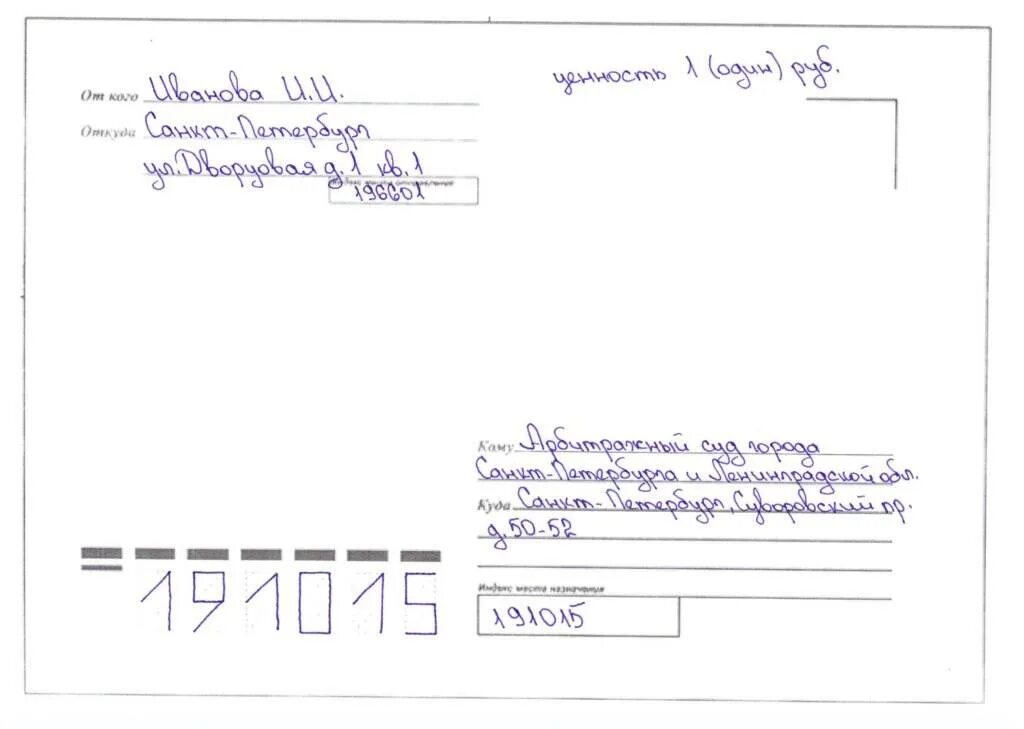 ценность 1 (один) руб.
От кого Иванова И.И.
Откуда Санкт-Петербург
ул. Дворцовая д.1 кв.1
Индекс места отправления
196601
Кому Арбитражный суд города
Санкт-Петербурга и Ленинградской обл.
Куда Санкт-Петербург, Суворовский пр.
д.50-52
Индекс места назначения
191015
191015